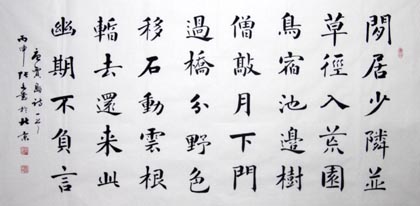 閒居少隣並
草徑入荒園
鳥宿池邊樹
僧敲月下門
過橋分野色
移石動雲根
暫去還来此
幽期不負言
唐賈島詩一首
丙申 書於北京